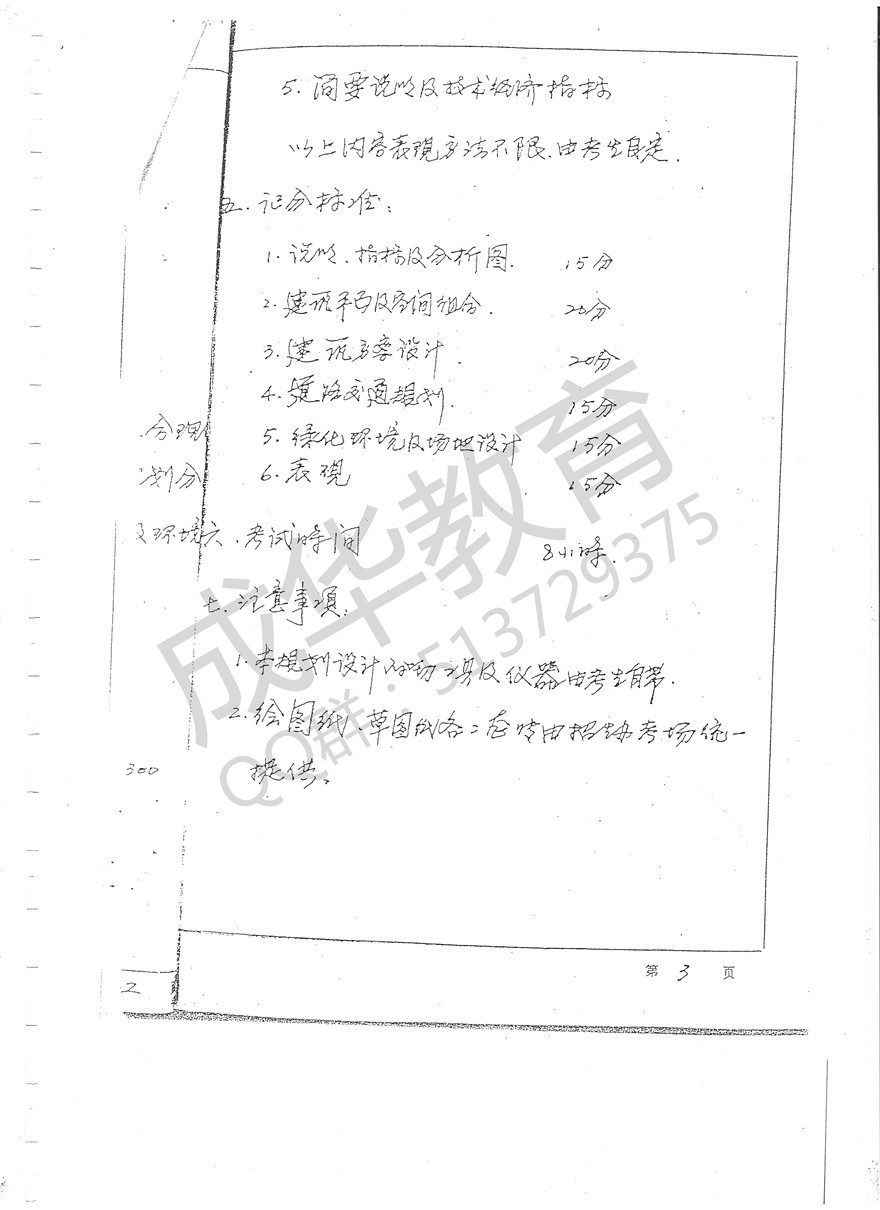 5. 简要说明及技术经济指标
以上内容表现方法不限、由考生自定.
五. 评分标准:
1. 说明、指标及分析图. 15分
2. 建筑平面及空间组合. 20分
3. 建筑方案设计. 20分
4. 道路交通规划. 15分
合理
5. 绿化环境及场地设计 15分
划分
6. 表现 15分
及环境
六. 考试时间 8小时.
七. 注意事项:
1. 本规划设计 工具及仪器由考生自带.
2. 绘图纸、草图纸各二 由招生办考场统一
提供.
300
第 3 页
2
成华教育
QQ群:513729375